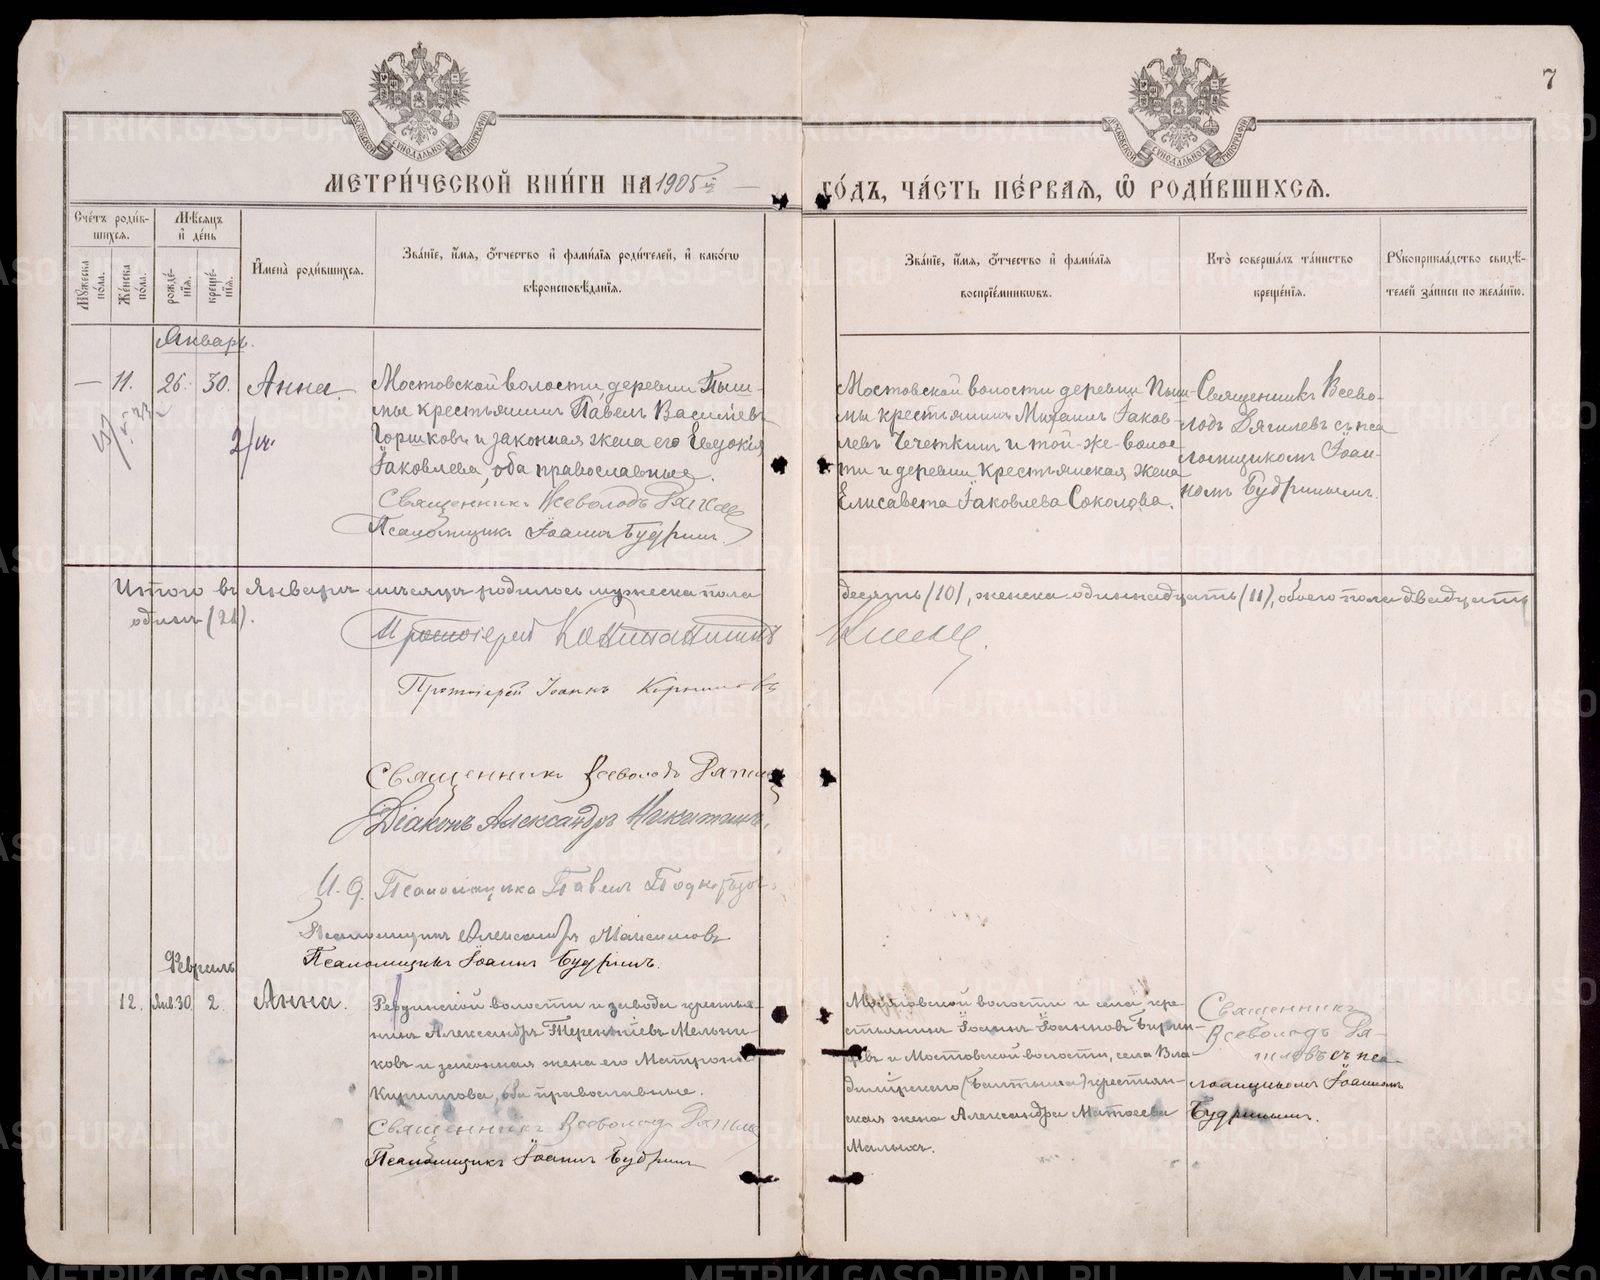 7
МЕТРИ́ЧЕСКОЙ КНИ́ГИ НА 1905й
ГО́ДЪ, ЧА́СТЬ ПЕ́РВАЯ, Ѽ РОДИ́ВШИХСЯ.
Сче́тъ роди́в-
шихся.
Мѣсяцъ
и день
Мужеска пола.
Же́нска пола.
рожде́-
нїя.
креще́-
нїя.
И҆мена̀ роди́вшихся.
Зва́нїе, и҆́мя, о҆́тчество и҆ фами́лїя роди́телей, и҆ како́гѡ
вѣроисповѣ́данїя.
Зва́нїе, и҆́мя, о҆́тчество и҆ фами́лїя
воспрїе́мникѡвъ.
Кто̀ соверша́лъ та́инство
креще́нїя.
Рꙋкоприкла́дство свидѣ́-
телей за́писи по жела́нїю.
Январь.
— 11. 26. 30. Анна.
Мостовской волости деревни Пыш-
мы крестьянинъ Павелъ Васильевъ
Горшковъ и законная жена его Евдокія
Іаковлева, оба православные.
Священникъ Всеволодъ
Псаломщикъ Іоаннъ Будринъ.
Мостовской волости деревни Пыш-
мы крестьянинъ Михаилъ Іаков-
левъ Чечеткинъ и той-же волос-
ти и деревни крестьянская жена
Елисавета Іаковлева Соколова.
Священникъ Всево-
лодъ съ пса
ломщикомъ Іоан-
номъ Будринымъ.
Итого въ Январѣ мѣсяцѣ родилось мужеска пола
десять (10), женска одиннадцать (11), обоего пола двадцать
одинъ (21).
Протоіерей Константинъ
Протоіерей Іоаннъ
Священникъ Всеволодъ
Діаконъ Александръ
И. д. Псаломщика Павелъ
Псаломщикъ Александръ Максимовъ
Псаломщикъ Іоаннъ Будринъ.
Февраль
12. Янв. 30 2. Анна.
Ревдинской волости и завода крестья-
нинъ Александръ Терентіевъ Мельни-
ковъ и законная жена его Матрона
Кириллова, оба православные.
Священникъ Всеволодъ
Псаломщикъ Іоаннъ Будринъ
Мостовской волости и села кре-
стьянинъ Іоаннъ Іоанновъ
и Мостовской волости, села Вла-
димірскаго (Балтыма) крестьян-
ская жена Александра Матѳеева
Малыхъ.
Священникъ
Всеволодъ
съ пса-
ломщикомъ Іоанномъ
Будринымъ.